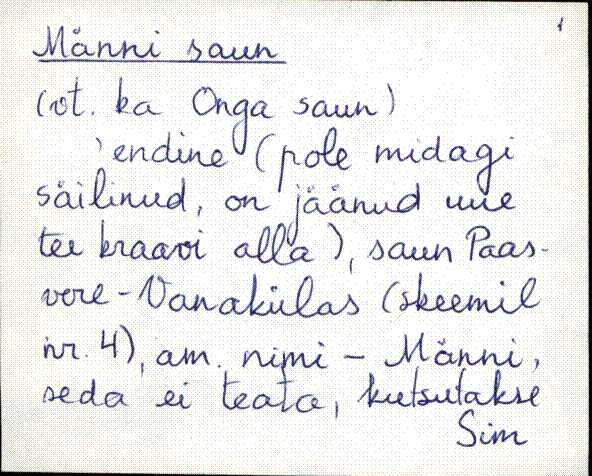 1
Männi saun
(vt. ka Onga saun)
endine (pole midagi
säilinud, on jäänud uue
tee kraavi alla), saun Paas-
vere-Vanakülas (skeemil
nr. 4), am. nimi - Männi,
seda ei teata, kutsutakse
Sim